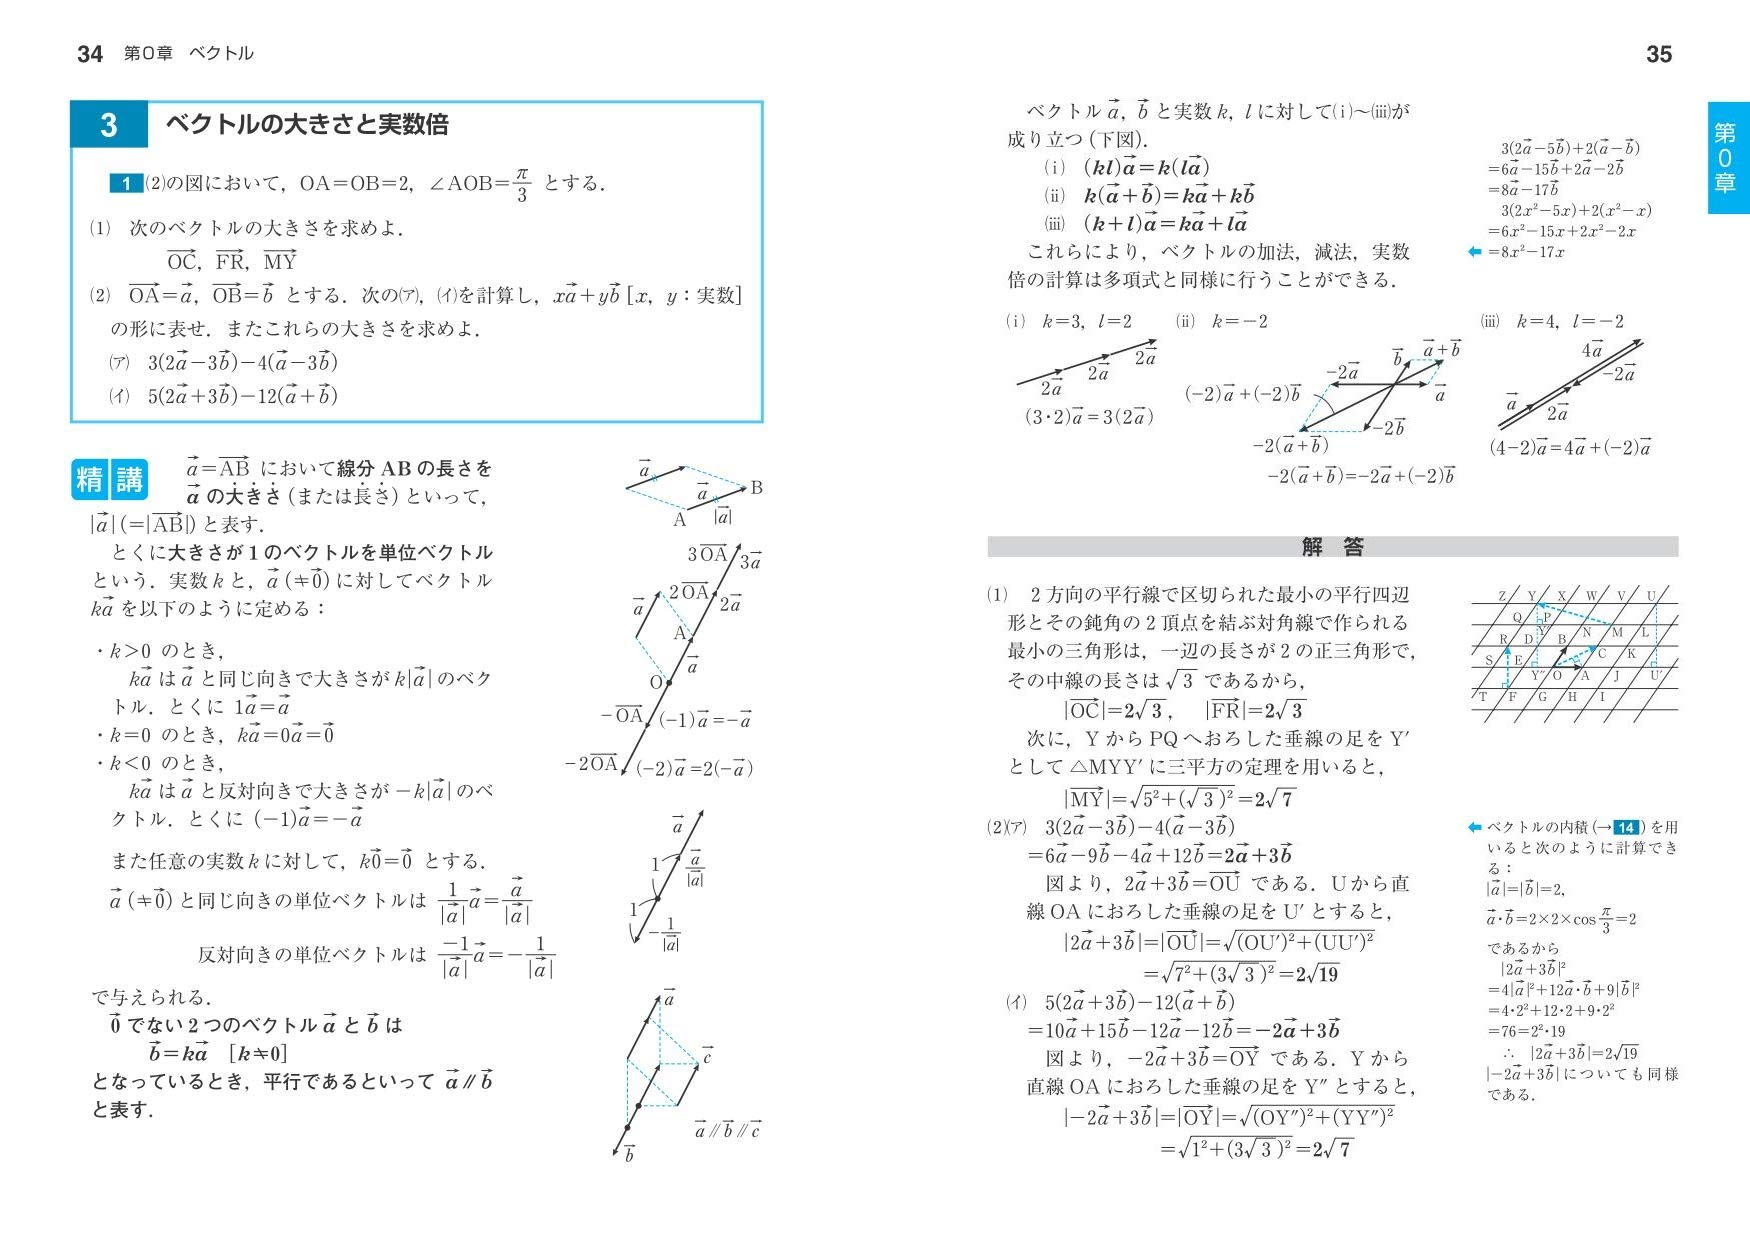 34 第0章 ベクトル
3 ベクトルの大きさと実数倍
1 (2)の図において，OA=OB=2，∠AOB=π/3 とする．
(1) 次のベクトルの大きさを求めよ．
OC→，FR→，MY→
(2) OA→=a→，OB→=b→ とする．次の(ア)，(イ)を計算し，xa→+yb→ [x，y：実数]
の形に表せ．またこれらの大きさを求めよ．
(ア) 3(2a→−3b→)−4(a→−3b→)
(イ) 5(2a→+3b→)−12(a→+b→)
精講 a→=AB→ において線分 AB の長さを
a→ の大きさ (または長さ) といって，
|a→|(=|AB→|) と表す．
とくに大きさが 1 のベクトルを単位ベクトル
という．実数 k と，a→ (≠0→) に対してベクトル
ka→ を以下のように定める：
・k>0 のとき，
ka→ は a→ と同じ向きで大きさが k|a→| のベク
トル．とくに 1a→=a→
・k=0 のとき，ka→=0a→=0→
・k<0 のとき，
ka→ は a→ と反対向きで大きさが −k|a→| のベ
クトル．とくに (−1)a→=−a→
また任意の実数 k に対して，k0→=0→ とする．
a→ (≠0→) と同じ向きの単位ベクトルは 1/|a→| a→=a→/|a→|
反対向きの単位ベクトルは −1/|a→| a→=−1/|a→|
で与えられる．
0→ でない 2 つのベクトル a→ と b→ は
b→=ka→ [k≠0]
となっているとき，平行であるといって a→∥b→
と表す．
a→
a→ B
A |a→|
3OA→ 3a→
a→ 2OA→ 2a→
A
a→
O
−OA→ (−1)a→=−a→
−2OA→ (−2)a→=2(−a→)
a→
1 a→/|a→|
1 −1/|a→|
a→
c→
a→∥b→∥c→
b→
35
第0章
ベクトル a→，b→ と実数 k，l に対して(i)〜(iii)が
成り立つ (下図)．
(i) (kl)a→=k(la→)
(ii) k(a→+b→)=ka→+kb→
(iii) (k+l)a→=ka→+la→
これらにより，ベクトルの加法，減法，実数
倍の計算は多項式と同様に行うことができる．
3(2a→−5b→)+2(a→−b→)
=6a→−15b→+2a→−2b→
=8a→−17b→
3(2x²−5x)+2(x²−x)
=6x²−15x+2x²−2x
⬅ =8x²−17x
(i) k=3，l=2
2a→
2a→
2a→
(3・2)a→=3(2a→)
(ii) k=−2
b→ a→+b→
−2a→
(−2)a→+(−2)b→ a→
−2b→
−2(a→+b→)
−2(a→+b→)=−2a→+(−2)b→
(iii) k=4，l=−2
4a→
−2a→
a→
2a→
(4−2)a→=4a→+(−2)a→
解 答
(1) 2 方向の平行線で区切られた最小の平行四辺
形とその鈍角の 2 頂点を結ぶ対角線で作られる
最小の三角形は，一辺の長さが 2 の正三角形で，
その中線の長さは √3 であるから，
|OC→|=2√3， |FR→|=2√3
次に，Y から PQ へおろした垂線の足を Y′
として △MYY′ に三平方の定理を用いると，
|MY→|=√(5²+(√3)²)=2√7
(2)(ア) 3(2a→−3b→)−4(a→−3b→)
=6a→−9b→−4a→+12b→=2a→+3b→
図より，2a→+3b→=OU→ である．U から直
線 OA におろした垂線の足を U′ とすると，
|2a→+3b→|=|OU→|=√((OU′)²+(UU′)²)
=√(7²+(3√3)²)=2√19
(イ) 5(2a→+3b→)−12(a→+b→)
=10a→+15b→−12a→−12b→=−2a→+3b→
図より，−2a→+3b→=OY→ である．Y から
直線 OA におろした垂線の足を Y″ とすると，
|−2a→+3b→|=|OY→|=√((OY″)²+(YY″)²)
=√(1²+(3√3)²)=2√7
Z Y X W V U
Q P
Y′ N M L
R D B
C K
S E
Y″ O A J U′
T F G H I
⬅ ベクトルの内積 (→14) を用
いると次のように計算でき
る：
|a→|=|b→|=2，
a→・b→=2×2×cos π/3=2
であるから
|2a→+3b→|²
=4|a→|²+12a→・b→+9|b→|²
=4・2²+12・2+9・2²
=76=2²・19
∴ |2a→+3b→|=2√19
|−2a→+3b→| についても同様
である．